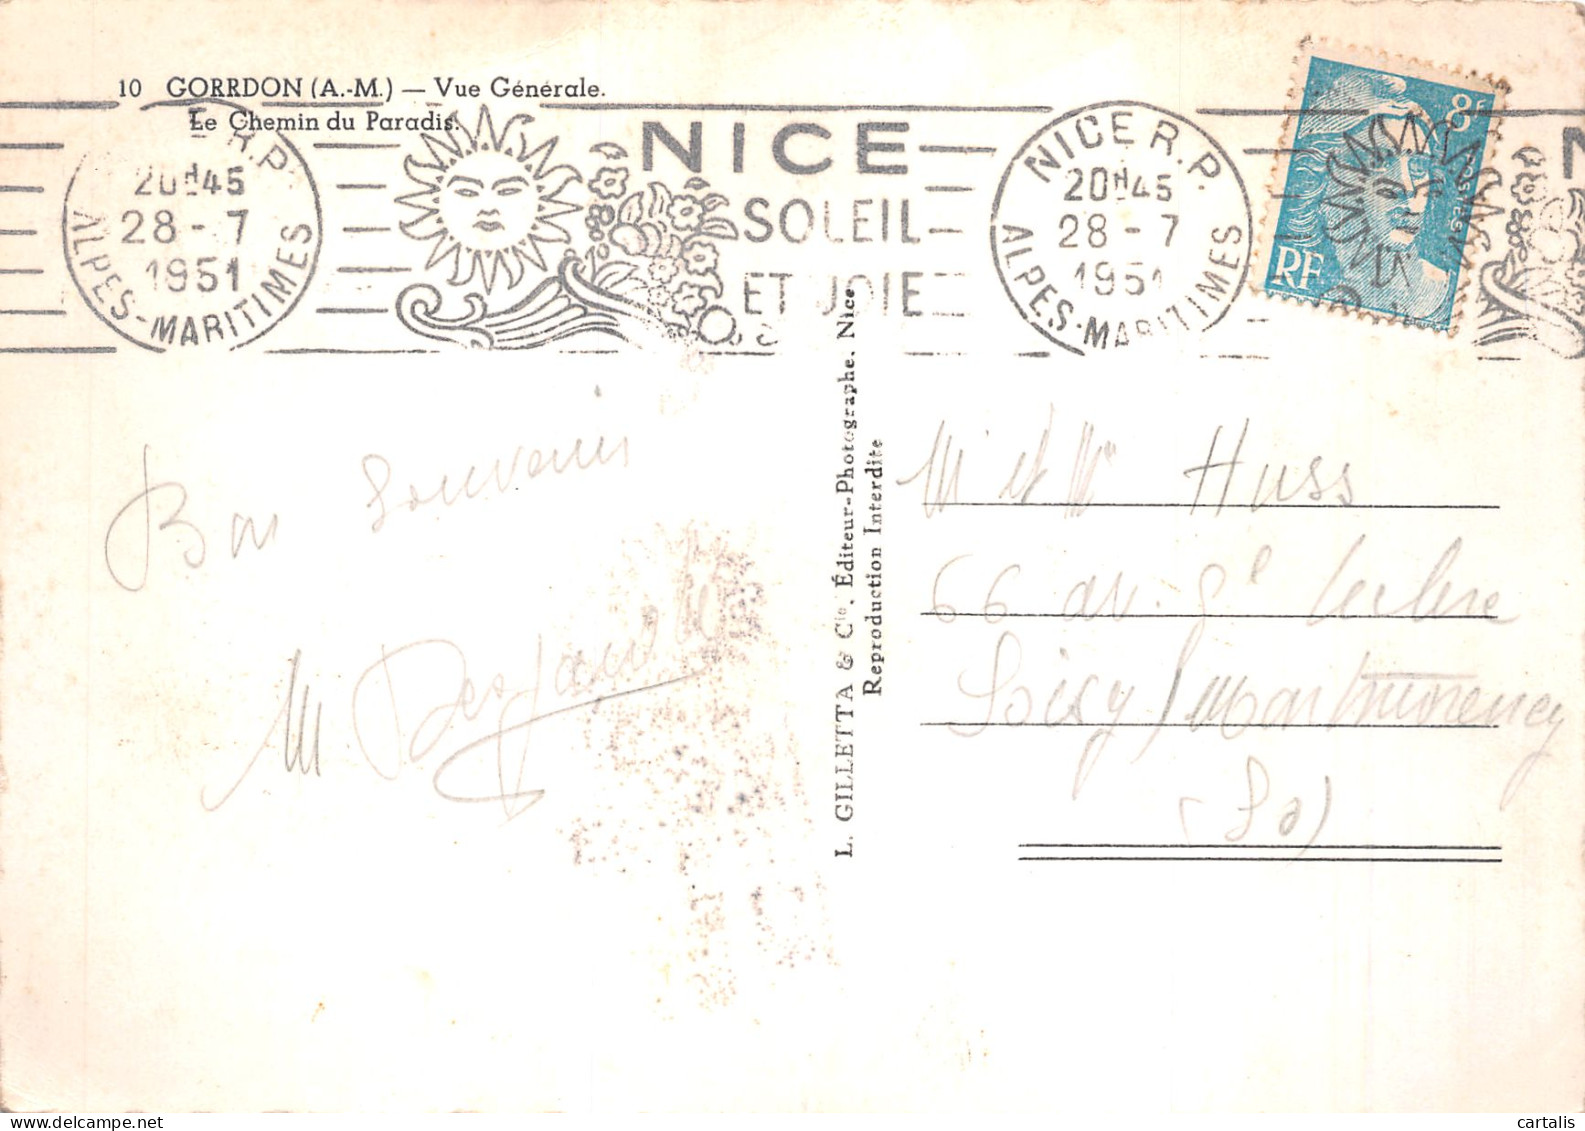 10 GORRDON (A.-M.) — Vue Générale.
Le Chemin du Paradis.
R.P.
20H45
28 - 7
1951
ALPES-MARITIMES
NICE
SOLEIL
ET JOIE
NICE R.P.
20H45
28 - 7
1951
ALPES-MARITIMES
8F
POSTES
RF
N
Bon Souvenir
M
L. GILLETTA & Cie, Éditeur-Photographe, Nice
Reproduction Interdite
M et Mme Huss
66 av. Gl Leclerc
Soisy / Montmorency
(S O)
cartalis
delcampe.net